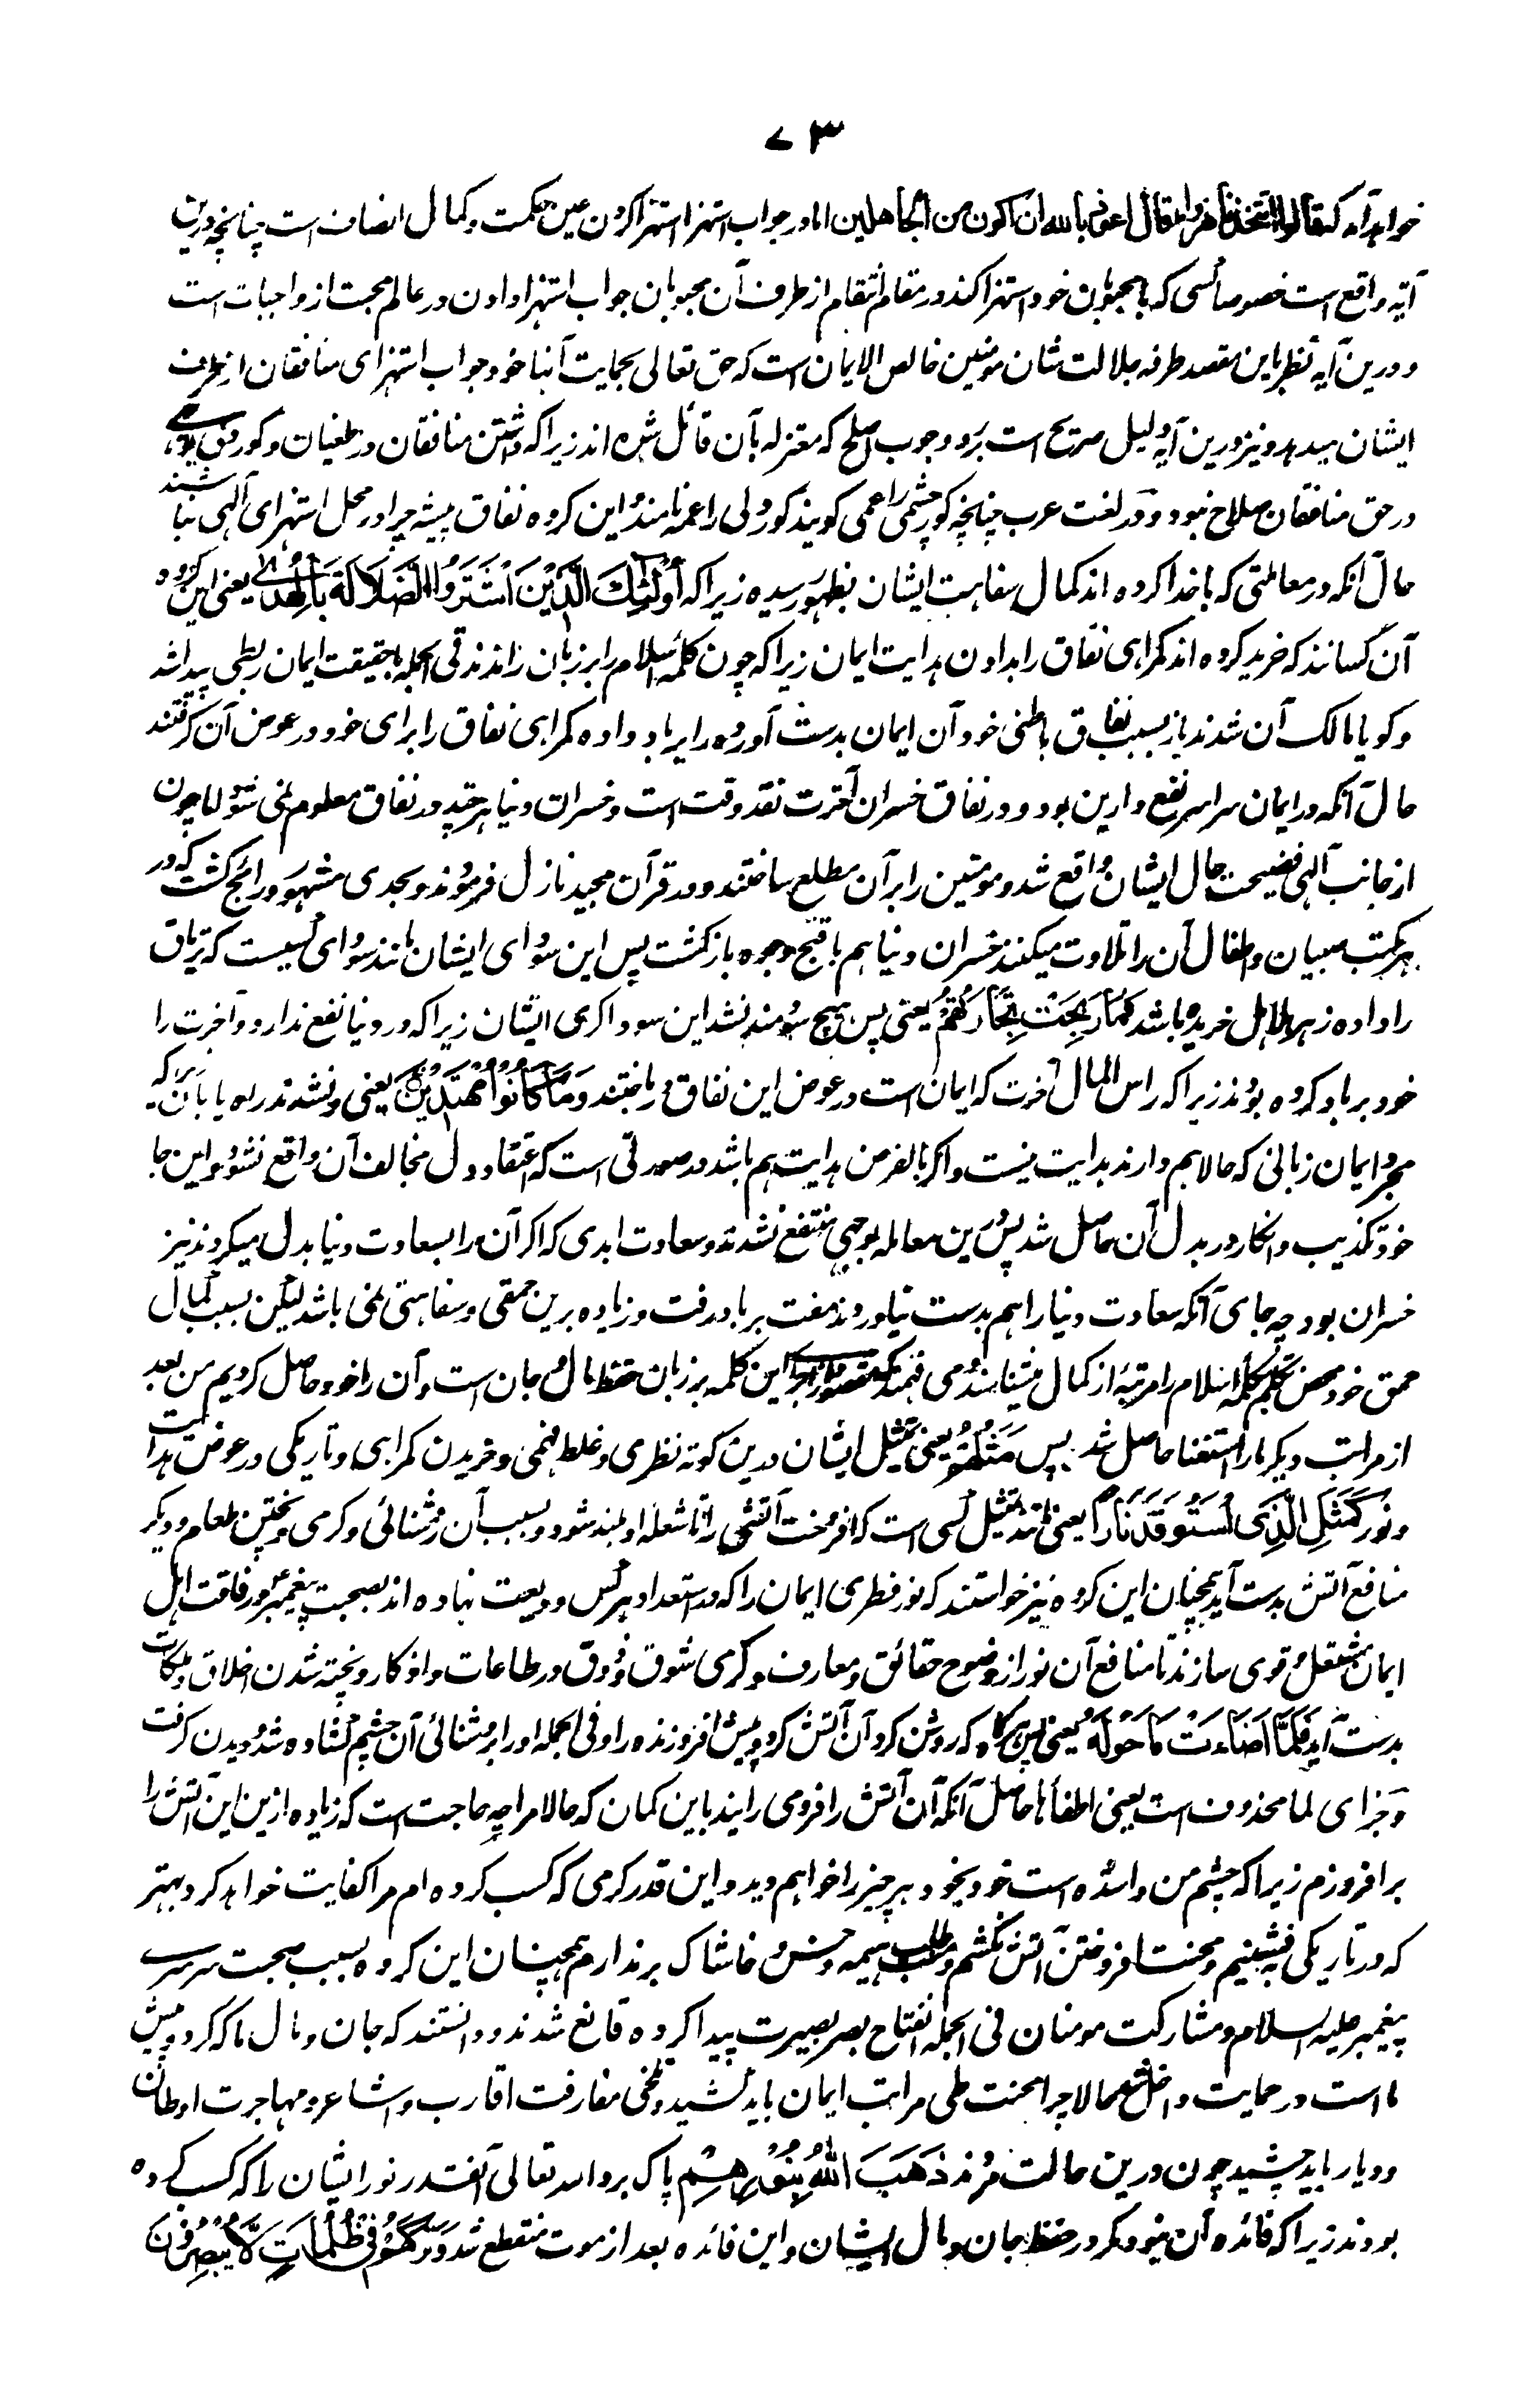 ۷۳
خواهد آمد که قالوا اتتخذنا هزوا قال اعوذ بالله ان اکون من الجاهلین اما در جواب استهزا استهزا کردن عین حکمت و کمال انصاف است چنانچه درین
آیه واقع است خصوصا کسی که با محبوبان خود استهزا کند در مقام انتقام از طرف آن محبوبان جواب استهزا دادن در عالم محبت از واجبات است
و درین آیه نظر باین مقصد طرفه جلالت شان مومنین خالص الایمان است که حق تعالی بحمایت آنها خود جواب استهزای منافقان از طرف
ایشان میدهد و نیز درین آیه دلیل صریح است بر رد وجوب اصلح که معتزله بآن قائل شده اند زیرا که داشتن منافقان در طغیان و کور
در حق منافقان صلاح نبود و در لغت عرب چنانچه کور چشمی را عمی گویند کور دلی را عمه نامند و این گروه نفاق پیشه چرا در محل استهزای الهی نباشند
حال آنکه در معاملتی که با خدا کرده اند کمال سفاهت ایشان بظهور رسیده زیرا که أُولٰئِكَ الَّذِيْنَ اشْتَرَوُا الضَّلَالَةَ بِالْهُدٰى یعنی این گروه
آن کسانند که خرید کرده اند گمراهی نفاق را بدادن هدایت ایمان زیرا که چون کلمهٔ اسلام را بر زبان راندند فی الجمله با حقیقت ایمان ربطی پیدا شد
و گویا مالک آن شدند باز بسبب نفاق باطنی خود آن ایمان بدست آورده را برباد داده گمراهی نفاق را برای خود در عوض آن گرفتند
حال آنکه در ایمان سراسر نفع دارین بود و در نفاق خسران آخرت نقد وقت است و خسران دنیا هر چند در نفاق معلوم نمی شود لیکن چون
از جانب الهی فضیحت حال ایشان واقع شد و مومنین را بر آن مطلع ساختند و در قرآن مجید نازل فرمودند و بحدی مشهور و رائج گشت که در
هر مکتب صبیان و اطفال آن را تلاوت میکنند خسران دنیا هم باقبح وجوه بازگشت پس این سودای ایشان مانند سودای کسیست که تریاق
را داده زهر هلاهل خریده باشد فَمَا رَبِحَتْ تِجَارَتُهُمْ یعنی پس هیچ سودمند نشد این سوداگری ایشان زیرا که در دنیا نفع ندارد و آخرت را
خود برباد کرده بودند زیرا که راس المال آخرت که ایمان است در عوض این نفاق در باختند وَمَا كَانُوْا مُهْتَدِيْنَ یعنی و نشدند راه یابان زیرا که
مجرد ایمان زبانی که حالا هم دارند هدایت نیست و اگر بالفرض هدایت هم باشد در صورتی است که اعتقاد دل مخالف آن واقع نشود و این جا
خود تکذیب و انکار در بدل آن حاصل شد پس درین معامله بوجهی منتفع نشدند و سعادت ابدی که اگر آن را بسعادت دنیا بدل میکردند نیز
خسران بود چه جای آنکه سعادت دنیا را هم بدست نیاوردند مفت برباد رفت و زیاده برین حمقی و سفاهتی نمی باشد لیکن بسبب کمال
حمق خود محض تکلم بکلمهٔ اسلام را مرتبهٔ از کمال میشناسند و می فهمند که مقصود از اجرای این کلمه بر زبان حفظ مال و جان است و آن را خود حاصل کردیم من بعد
از مراتب دیگر ما را استغنا حاصل شد پس مَثَلُهُمْ یعنی تمثیل ایشان درین کوته نظری و غلط فهمی و خریدن گمراهی و تاریکی در عوض هدایت
و نور كَمَثَلِ الَّذِى اسْتَوْقَدَ نَارًا یعنی مانند تمثیل کسی است که افروخت آتشی را تا شعلهٔ او بلند شود و بسبب آن روشنائی و گرمی و پختن طعام و دیگر
منافع آتش بدست آید همچنان این گروه نیز خواستند که نور فطری ایمان را که در استعداد هر کس ودیعت نهاده اند بصحبت پیغمبر و رفاقت اهل
ایمان مشتعل و قوی سازند تا منافع آن نور از وضوح حقائق و معارف و گرمی شوق و ذوق در طاعات و اذکار و پخته شدن اخلاق و ملکات
بدست آید فَلَمَّا اَضَاءَتْ مَا حَوْلَهٗ یعنی پس هرگاه که روشن کرد آن آتش گرد و پیش افروزنده را و فی الجمله او را بروشنائی آن چشم کشاده شد و دیدن گرفت
و جزای لما محذوف است یعنی اطفأها حاصل آنکه آن آتش را فرو می رانید باین گمان که حالا مرا چه حاجت است که زیاده ازین این آتش را
برافروزم زیرا که چشم من وا شده است خود بخود هر چیز را خواهم دید و این قدر گرمی که کسب کرده ام مرا کفایت خواهد کرد بهتر
که در تاریکی بنشینم و محنت افروختن آتش نکشم و طلب هیمه و خس و خاشاک بر ندارم همچنان این گروه بسبب صحبت سرسری
پیغمبر علیه السلام و مشارکت مومنان فی الجمله انفتاح بصر بصیرت پیدا کرده قانع شدند و دانستند که جان و مال ما که گرد و پیش
ما است در حمایت داخل شد حالا چرا محنت طی مراتب ایمان باید کشید و تلخی مفارقت اقارب و عشائر و مهاجرت اوطان
و دیار باید چشید چون درین حالت مردند ذَهَبَ اللّٰهُ بِنُوْرِهِمْ پاک برد الله تعالی آنقدر نور ایشان را که کسب کرده
بودند زیرا که فائده آن نبود مگر در حفظ جان و مال ایشان و این فائده بعد از موت منقطع شد وَتَرَكَهُمْ فِىْ ظُلُمَاتٍ لَّا يُبْصِرُوْنَ